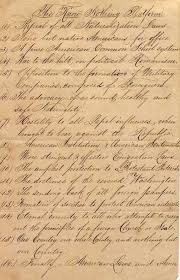 The Know Nothing Platform
(1) Repeal of all Naturalization Laws
2) None but native Americans for office
3) A pure American Common School system
4) War to the hilt, on political Romanism
5) Opposition to the formation of Military
Companies, composed of Foreigners.
6) The advocacy of a sound, healthy and
safe Nationality.
7) Hostility to all Papal influences, when
brought to bear against the Republic.
8) American Institutions & American Sentiments
9) More stringent & effective Emigration Laws
10) The amplest protection to Protestant Interests
11) The doctrines of the revered Washington
12) The sending back of all foreign paupers
13) Formation of societies to protect American interests
14) Eternal enmity to all who attempt to carry
out the principles of a foreign Church or State
15) Our Country, our whole Country, and nothing but
our Country.
16) Finally,—American Laws, and American